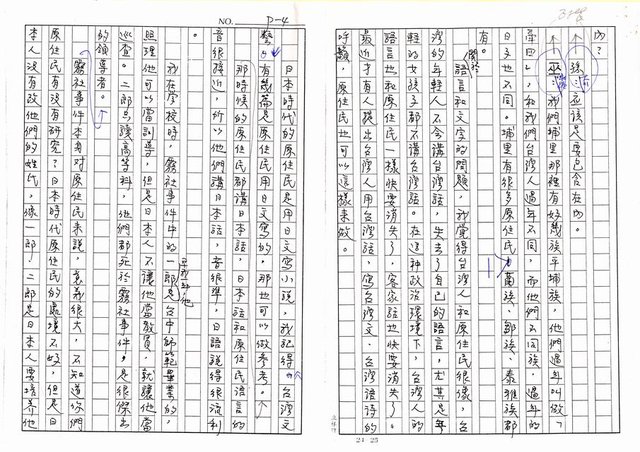 內?
孫:應該是要包含在內。
巫:我們埔里那裡有好幾族平埔族,他們過年叫做「
番田」,和我們台灣人過年不同,而他們不同族,過年的
日子也不同。埔里有很多原住民,葛族、鄒族、泰雅族都
有。
關於語言和文字的問題,我覺得台灣人和原住民很像,台
灣的年輕人不會講台灣話,失去了自己的語言,尤其是年
輕的女孩子都不講台灣話。在這種政治環境下,台灣人的
語言也和原住民一樣快要消失了。客家話也快要消失了。
最近才有人提出台灣人用台灣話,寫台灣文、台灣語詩的
呼籲,原住民也可以這樣來做。
24×25
NO. P-4
日本時代的原住民是用日文寫小說,我記得「台灣文
藝」有幾篇是原住民用日文寫的,那也可以做參考。
那時候的原住民都講日本話,日本話和原住民語言的
音很接近,所以他們講日本話,音很準,日語說得很流利
。
我在學校時,霧社事件中的一郎是台中師範畢業的,
照理他可以當訓導,但是日本人不讓他當教員,就讓他當
巡查。二郎只讀高等科,他們都死於霧社事件,是很傑出
的領導者。
霧社事件本身對原住民來說,意義很大,不知道你們
原住民有沒有研究?日本時代原住民的處境不好,但是日
本人沒有改他們的姓氏,像一郎、二郎是日本人要培養他